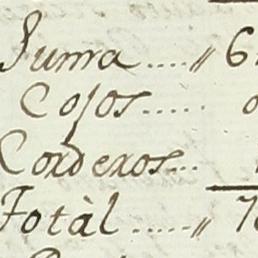 Suma ..... „ 6
Cojos ......
Corderos ...
Totàl ..... „ 7